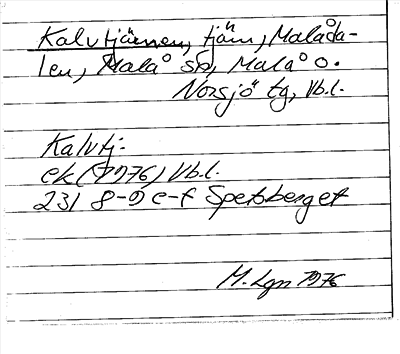 Kalvtjärnen, tjärn, Malåda-
len, Malå sn, Malå o.
Norsjö tg, Vb.l.
Kalvtj-
ek (1976) Vb.l.
231 8-9 e-f Spetsberget
M. Lgn 1976